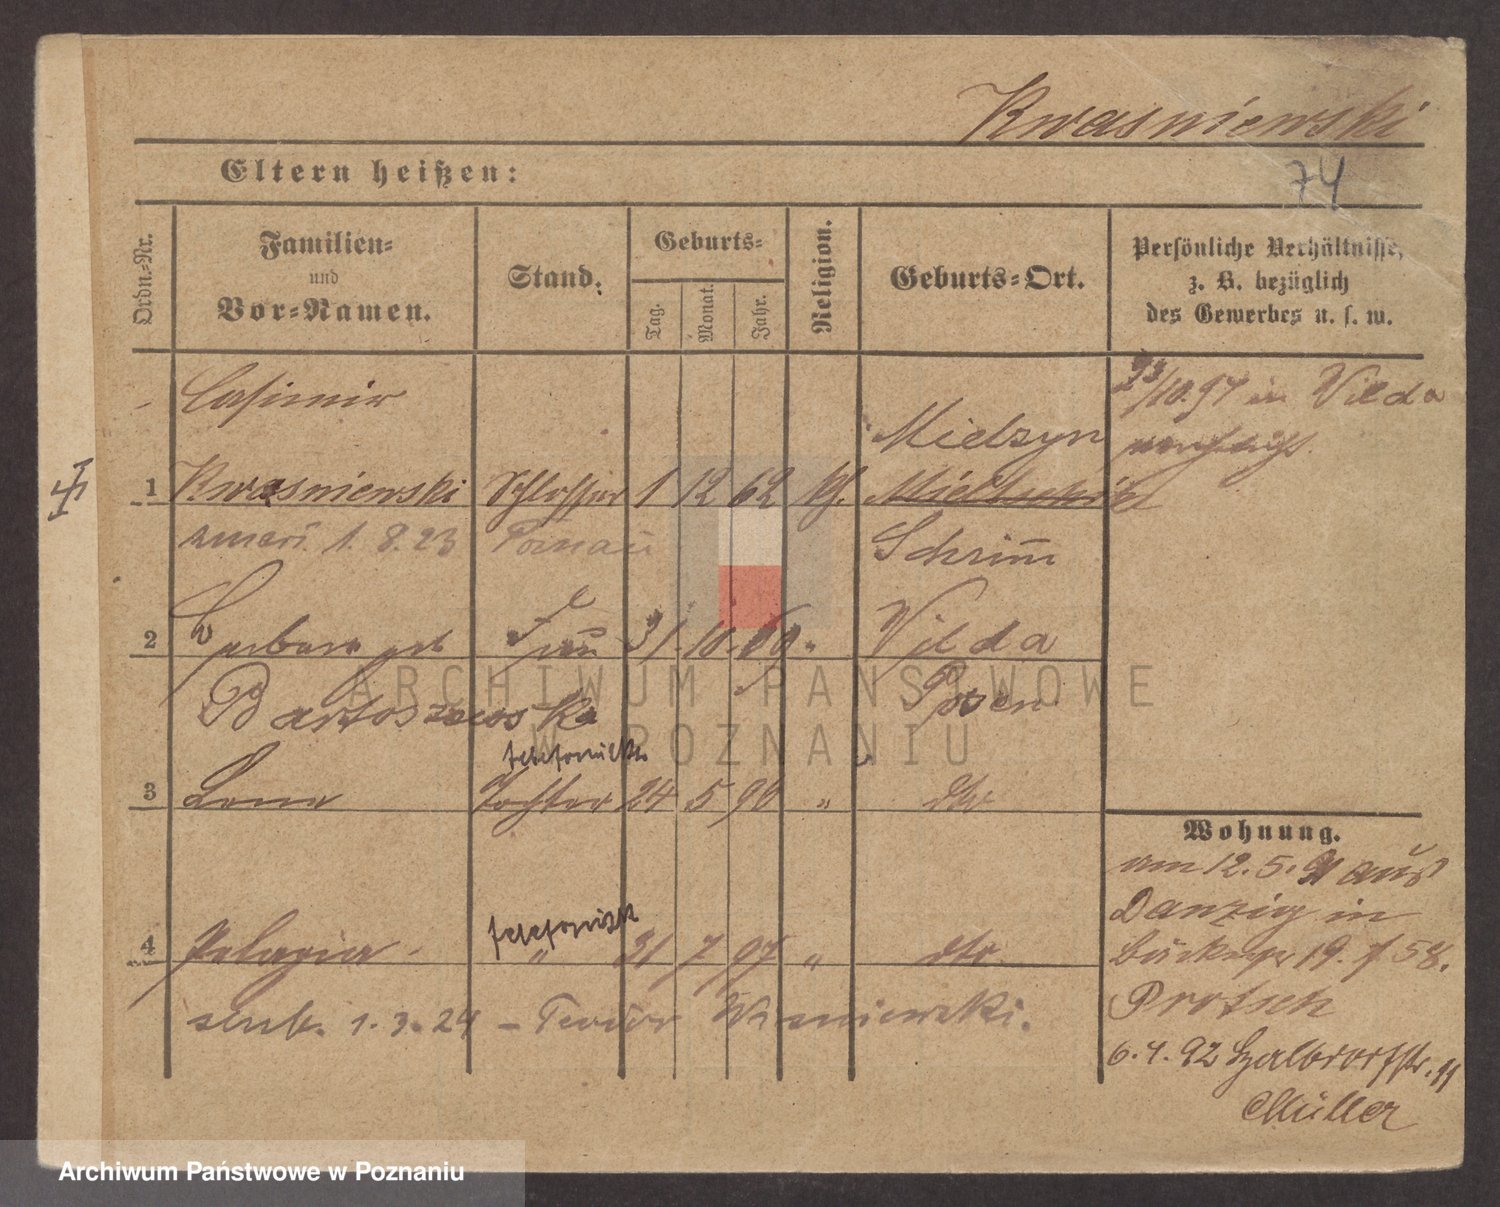 Kwasniewski
Eltern heißen:
74
Ordn.=Nr.
Familien=
und
Vor=Namen.
Stand.
Geburts=
Tag.
Monat.
Jahr.
Religion.
Geburts=Ort.
Persönliche Verhältnisse,
z. B. bezüglich
des Gewerbes u. s. w.
Casimir
23/10.97 in Vilda
Mielzyn
1 Kwasniewski Schlosser 1 12 62 kh.
1. 8. 23 Poznań
Schrim
2 Barbara geb Frau 31. 10. 69 " Vilda
Bartoszewska Posen
telefonistka
3 Lena Tochter 24 5 96 " dto
telefonistk
4 Pelagia " 31 7 97 " dto
1. 3. 24 – Teodor Wisniewski.
Wohnung.
am 12. 5. 91 aus
Danzig in
19. f 58.
Protsch
6. 4. 92 11
Müller
ARCHIWUM PAŃSTWOWE
W POZNANIU
Archiwum Państwowe w Poznaniu